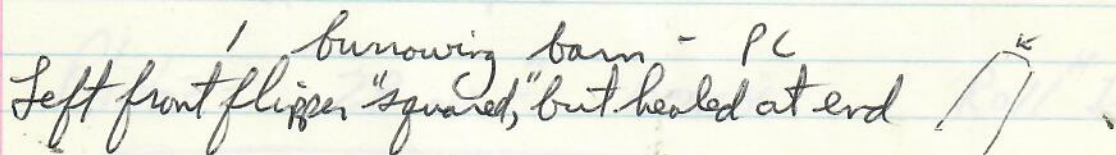 1 burrowing barn - PC
Left front flipper "squared," but healed at end